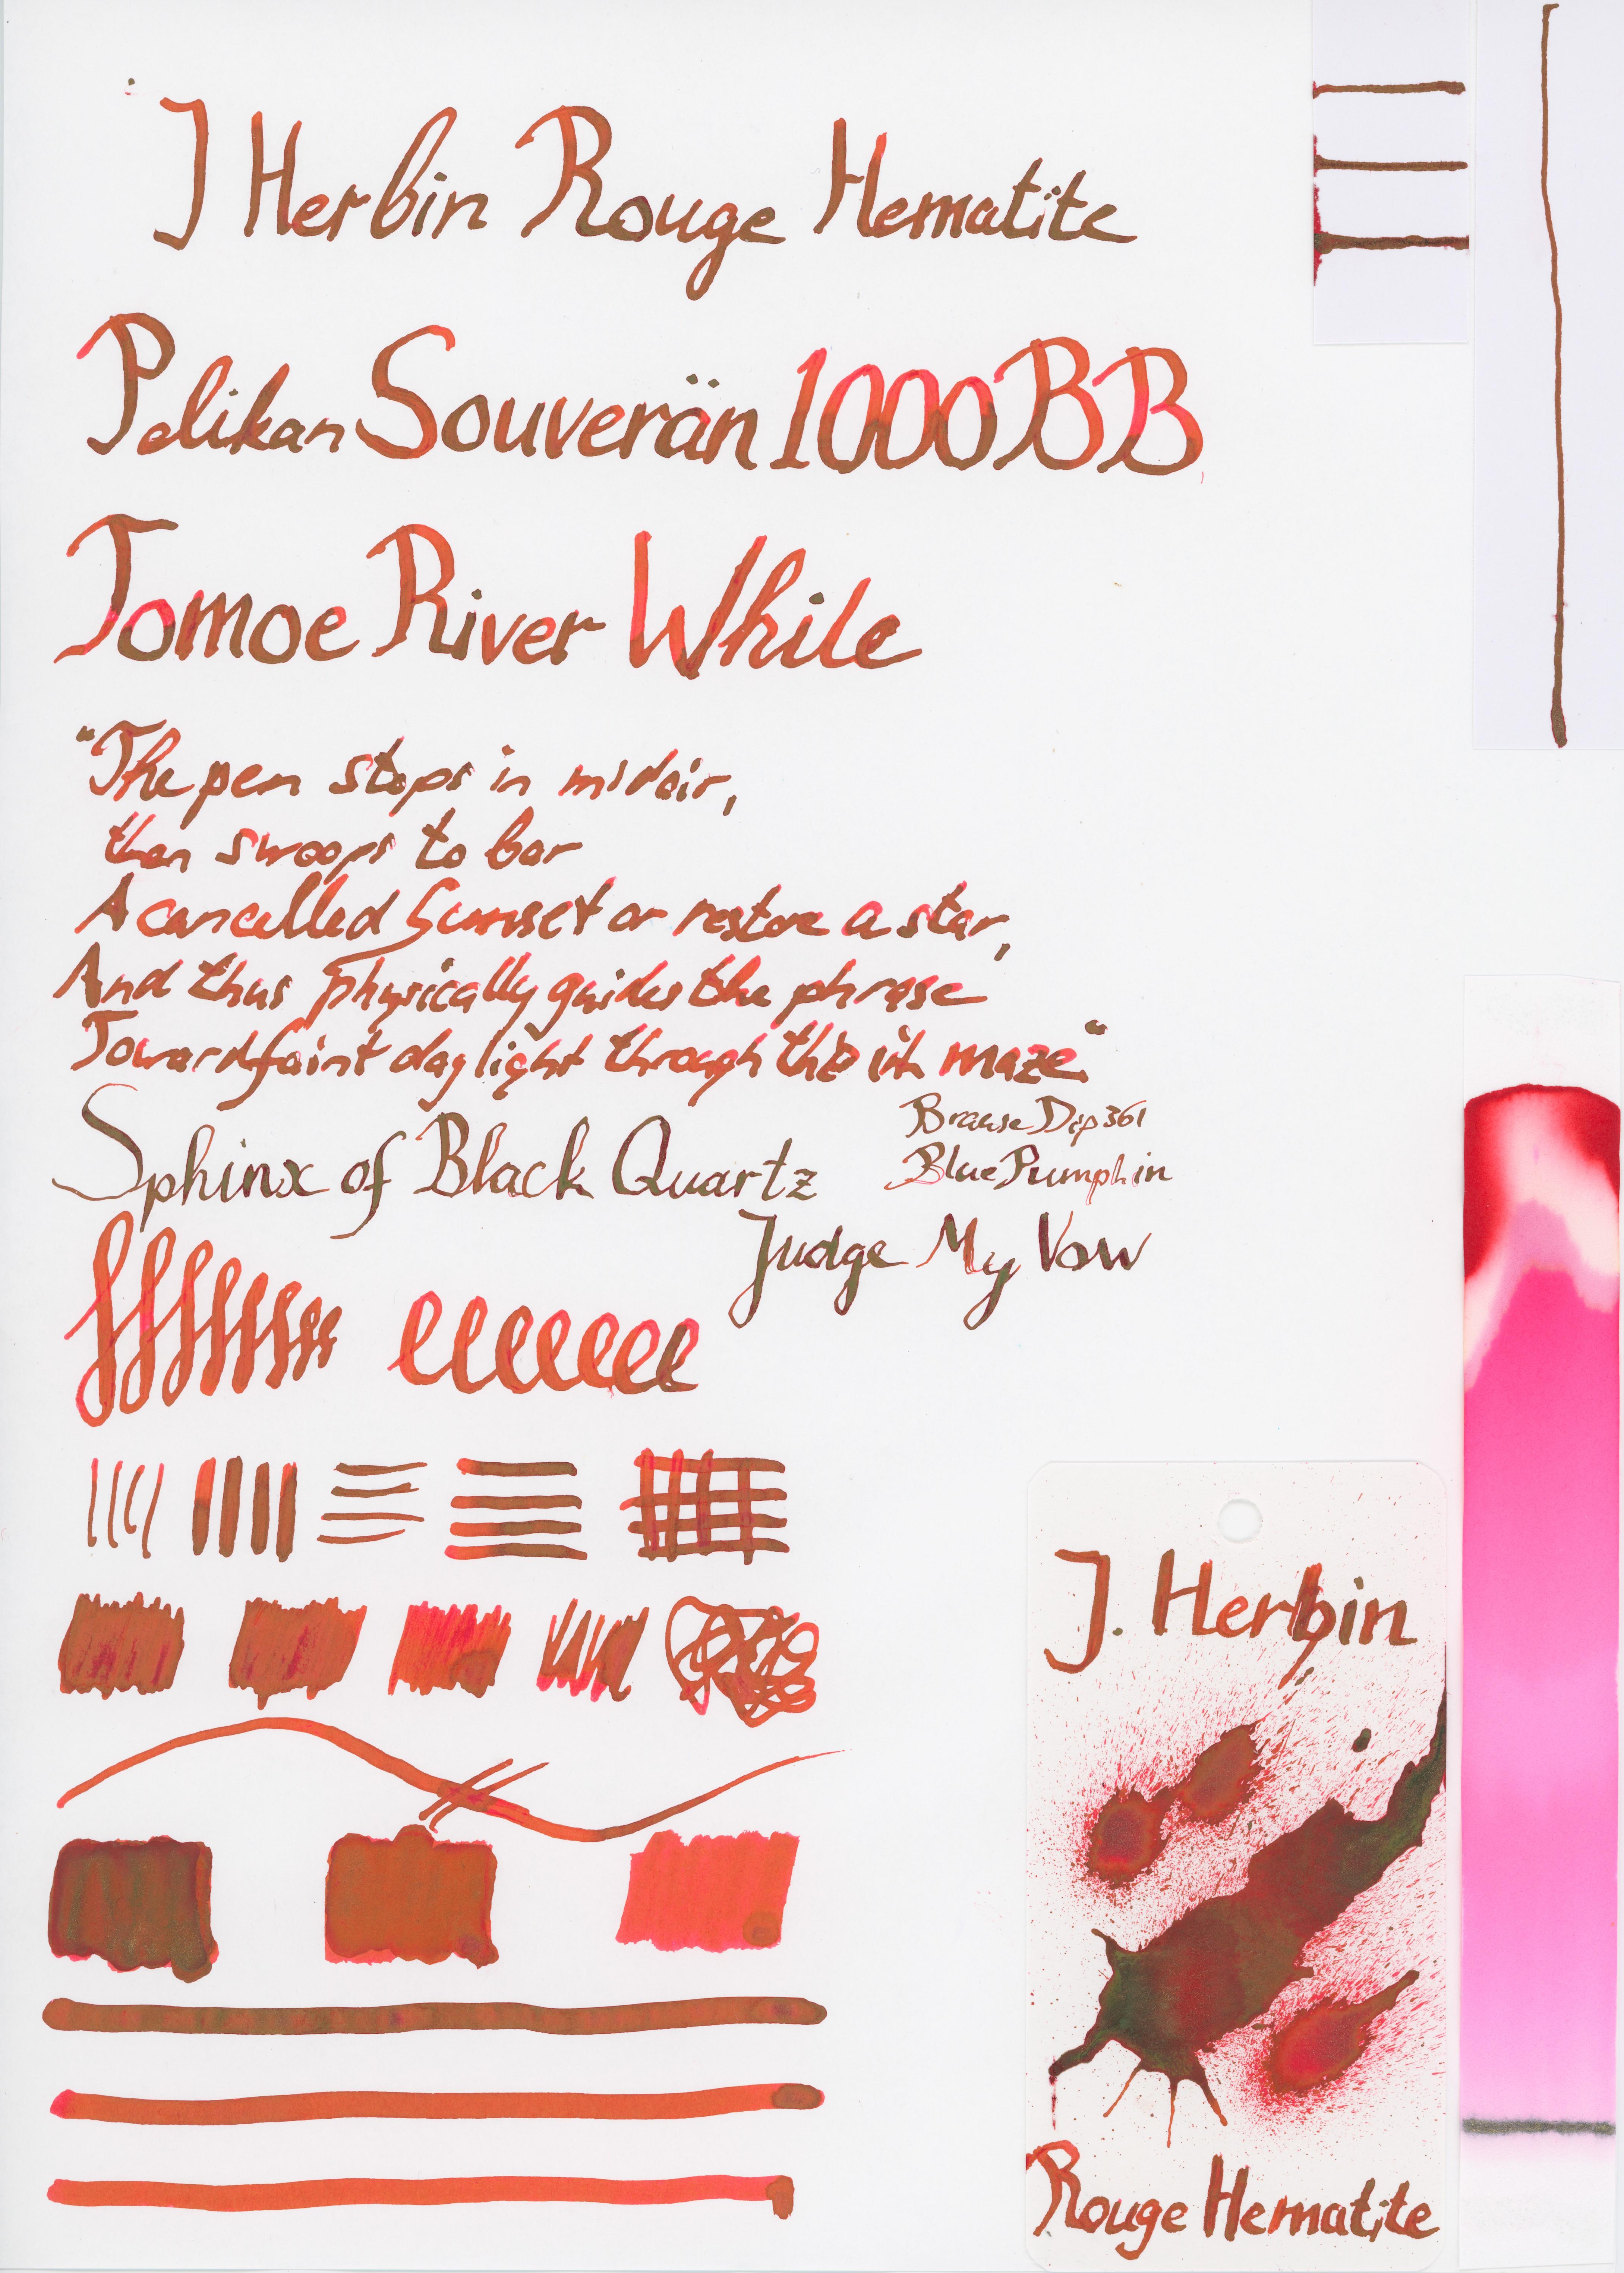 J Herbin Rouge Hematite
Pelikan Souverän 1000 BB
Tomoe River While
"The pen stops in midair,
then swoops to bar
A cancelled Sunset or restore a star,
And thus physically guides the phrase
Toward faint daylight through the ink maze."
Sphinx of Black Quartz
Brause Dip 361
Blue Pumpkin
Judge My Vow
J. Herbin
Rouge Hematite